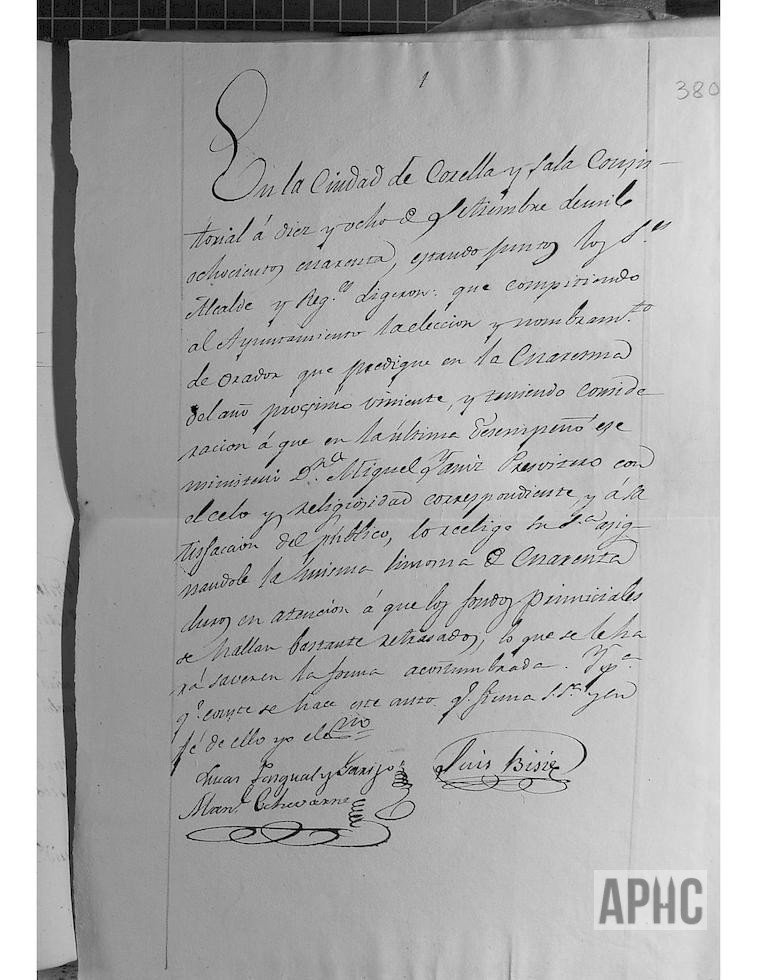 1
380
En la Ciudad de Corella y Sala Consis-
torial á diez y ocho de Setiembre de mil
ochocientos cuarenta, estando juntos los S.res
Alcalde y Reg.es digeron: que compitiendo
al Ayuntamiento la eleccion y nombram.to
de orador que predique en la Cuaresma
del año procsimo viniente, y teniendo conside
racion á que en la última desempeñó ese
ministerio D.n Miguel Presvitero con
el celo y religiosidad correspondiente, y á sa
tisfaccion del público, lo reeligió su S.a asig-
nandole la misma limosna de Cuarenta
duros en atencion á que los fondos primiciales
se hallan bastante retrasados, lo que se le ha
rá saver en la forma acostumbrada. Y p.a
q.e conste se hace este auto q.e firma S.S.a y en
fé de ello yo el Ess.no
Juan Pasqual y Garijo
Luis Bisié
Man.l Echavarne
APHC